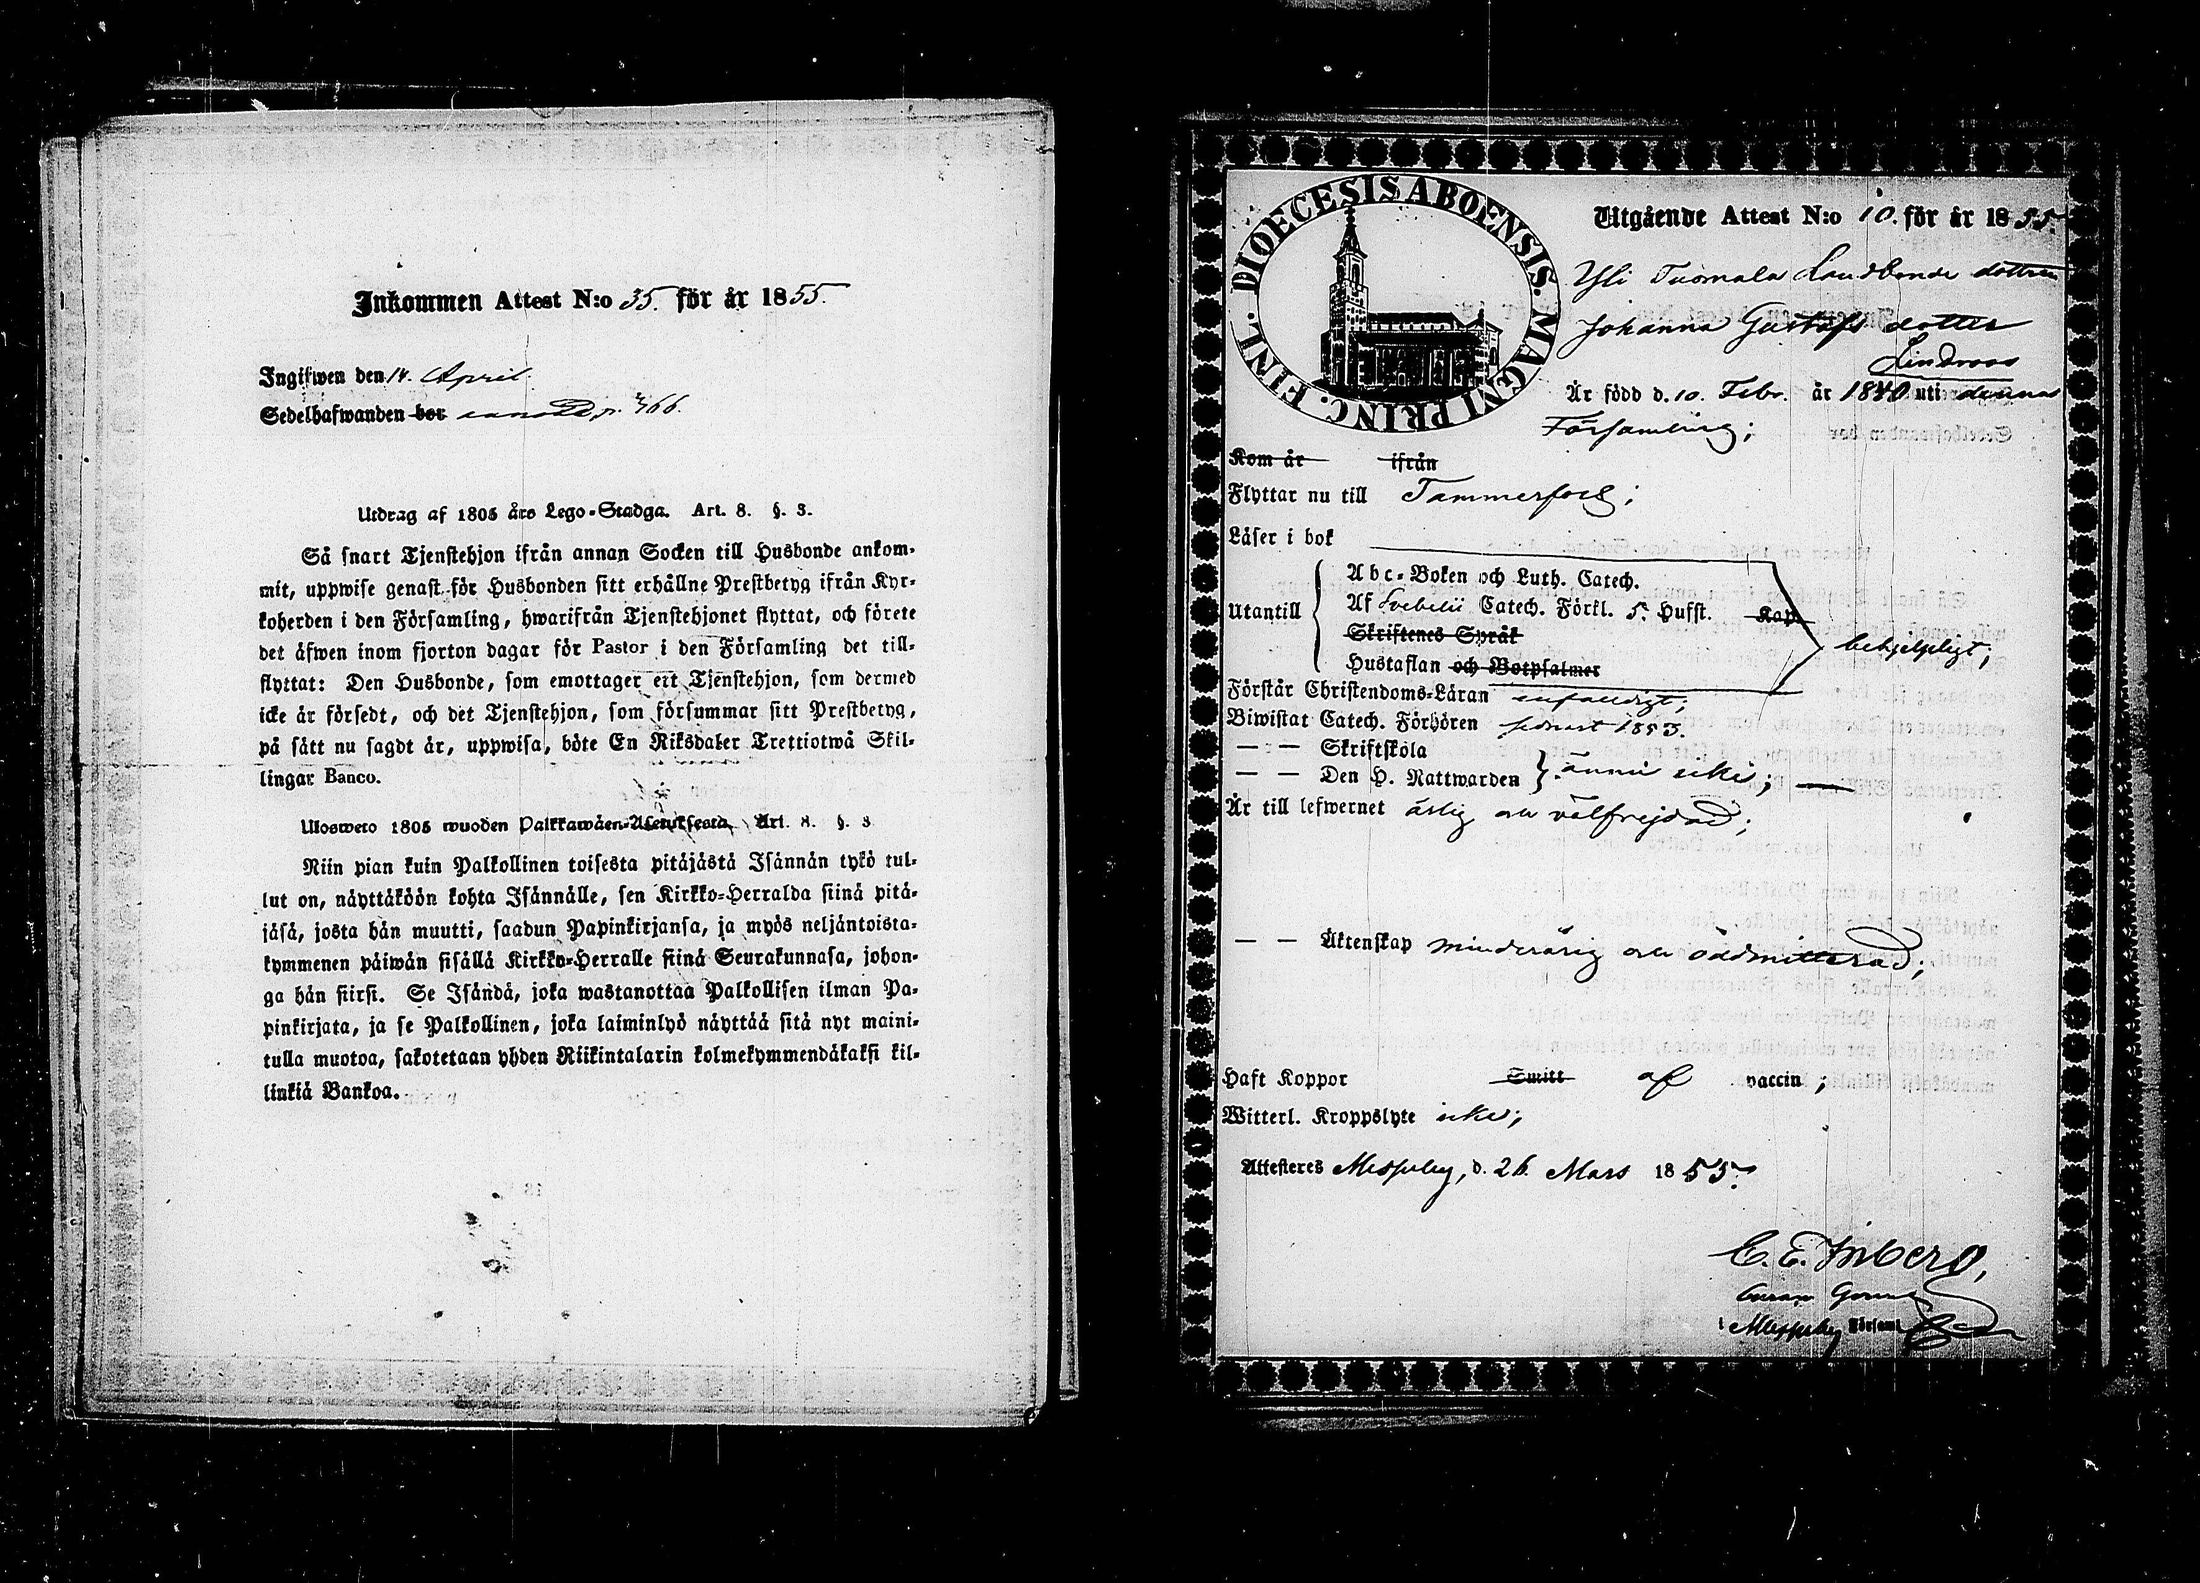 Inkommen Attest N:o 35. för år 1855.
Ingifwen den 14. April.
Sedelhafwanden bor p. 466.
Utdrag af 1805 års Lego-Stadga. Art. 8. §. 3.
Så snart Tjenstehjon ifrån annan Socken till Husbonde ankom-
mit, uppwise genast för Husbonden sitt erhållne Prestbetyg ifrån Kyr-
koherden i den Församling, hwarifrån Tjenstehjonet flyttat, och förete
det äfwen inom fjorton dagar för Pastor i den Församling det till-
flyttat: Den Husbonde, som emottager ett Tjenstehjon, som dermed
icke är försedt, och det Tjenstehjon, som försummar sitt Prestbetyg,
på sätt nu sagdt är, uppwisa, böte En Riksdaler Trettiotwå Skil-
lingar Banco.
Ulosweto 1805 wuoden Palkkawäen-Asetuksesta. Art. 8. §. 3
Niin pian kuin Palkollinen toisesta pitäjästä Isännän tykö tul-
lut on, näyttäköön kohta Isännälle, sen Kirkko-Herralda siinä pitä-
jäsä, josta hän muutti, saadun Papinkirjansa, ja myös neljäntoista-
kymmenen päiwän sisällä Kirkko-Herralle siinä Seurakunnasa, johon-
ga hän siirsi. Se Isändä, joka wastanottaa Palkollisen ilman Pa-
pinkirjata, ja se Palkollinen, joka laiminlyö näyttää sitä nyt maini-
tulla muotoa, sakotetaan yhden Riikintalarin kolmekymmendäkaksi kil-
linkiä Bankoa.
DIOECESIS ABOENSIS. MAGNI PRINC. FINL.
Utgående Attest N:o 10. för år 1855.
Yli Tuomala Landbonde dottren
Johanna Gustafs dotter
Lindroos
Är född d. 10. Febr. år 1840 uti denna
Församling;
Kom år ifrån
Flyttar nu till Tammerfors;
Läser i bok
Utantill
Abc-Boken och Luth. Catech.
Af Svebelii Catech. Förkl. 5. Hufst. Kap.
Skriftenes Språk
Hustaflan och Botpsalmer
behjelpligt;
Förstår Christendoms-Läran enfaldigt;
Biwistat Catech. Förhören sednast 1853.
— " — Skriftskola
— — Den H. Nattwarden } ännu icke; —
Är till lefwernet ärlig och välfrejdad;
— — Äktenskap minderårig och oadmitterad;
Haft Koppor Smitt af vaccin;
Witterl. Kroppslyte icke;
Attesteras Messuby, d. 26. Mars 1855.
C. E. Inberg,
i Messuby Församl